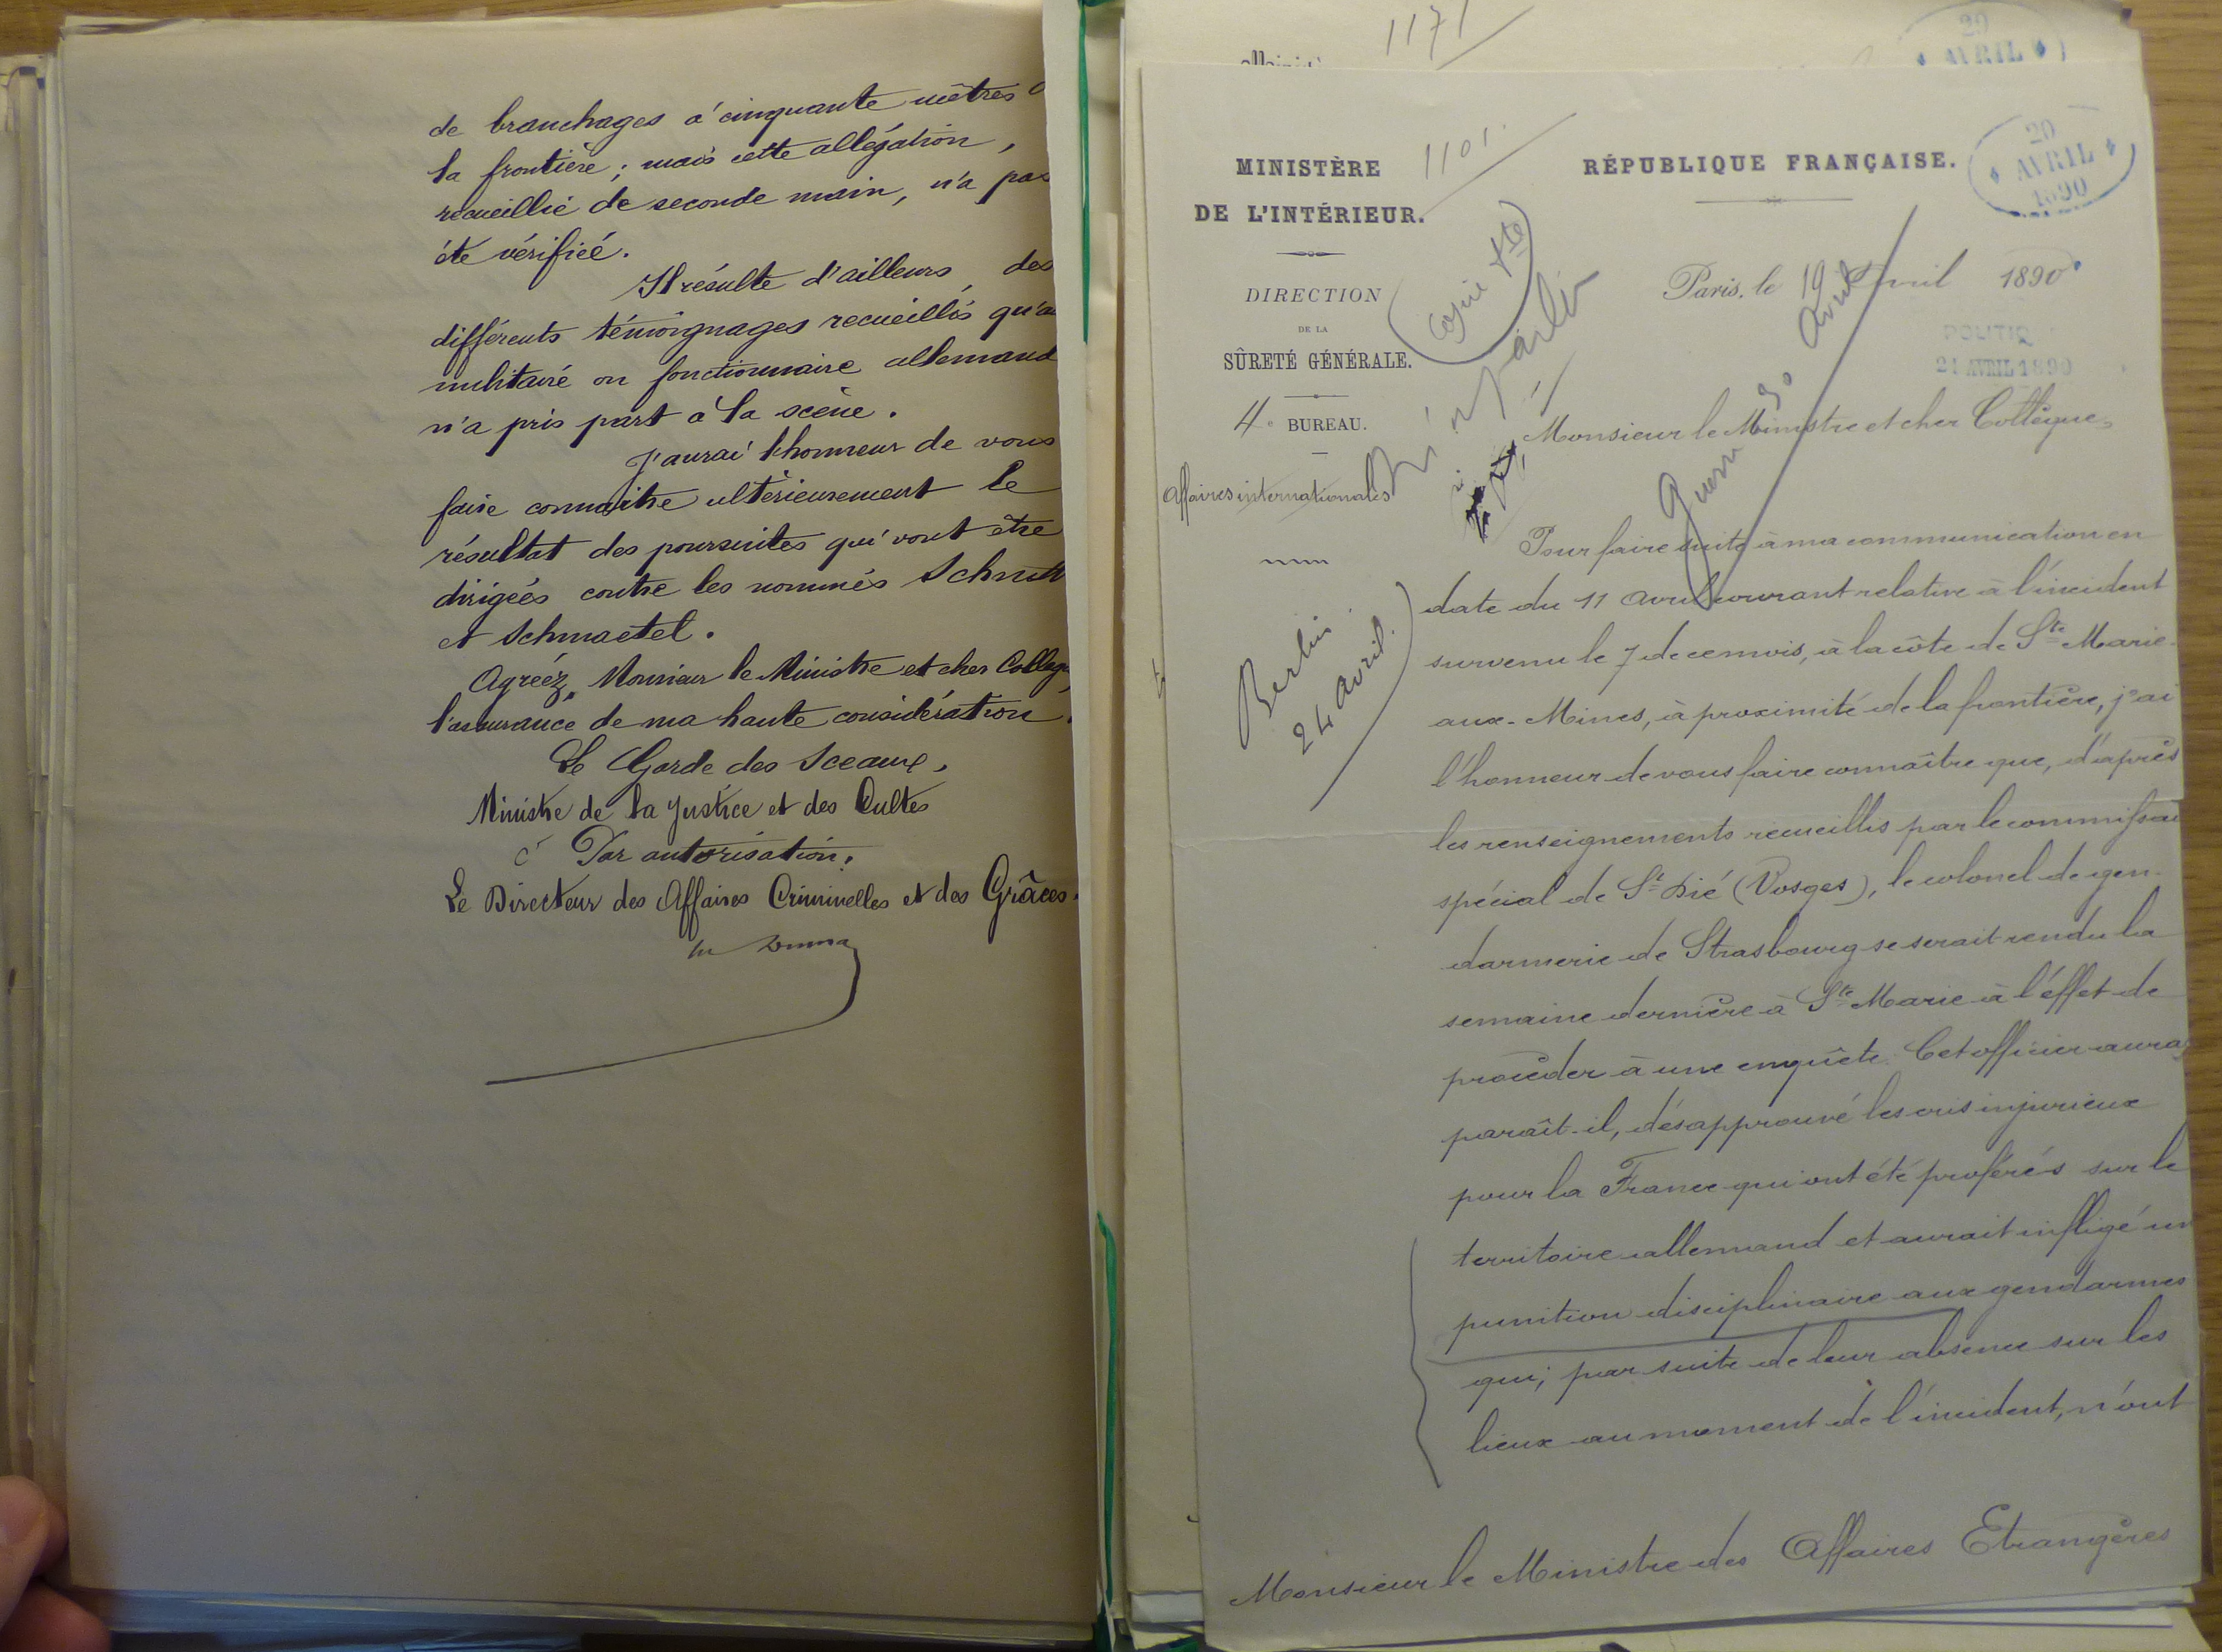 de branchages à cinquante mètres
la frontière ; mais cette allégation,
recueillie de seconde main, n'a pas
été vérifiée.
Il résulte d'ailleurs, des
différents témoignages recueillis qu'au
militaire ou fonctionnaire allemand
n'a pris part à la scène.
J'aurai l'honneur de vous
faire connaître ultérieurement le
résultat des poursuites qui vont être
dirigées contre les nommés Schmitt
et Schmaetel.
Agréez, Monsieur le Ministre et cher Collègue,
l'assurance de ma haute considération.
Le Garde des Sceaux,
Ministre de la Justice et des Cultes
Par autorisation.
Le Directeur des Affaires Criminelles et des Grâces.
1171
29
AVRIL
1101.
MINISTÈRE
DE L'INTÉRIEUR.
DIRECTION
DE LA
SÛRETÉ GÉNÉRALE.
4e BUREAU.
Affaires internationales
Berlin
24 avril.
Copie
RÉPUBLIQUE FRANÇAISE.
20
AVRIL
1890
Paris, le 19 Avril 1890
POLITIQ
21 AVRIL 1890
Guerre 30 avril
Monsieur le Ministre et cher Collègue,
Pour faire suite à ma communication en
date du 11 avril courant relative à l'incident
survenu le 7 de ce mois, à la côte de Ste Marie-
aux-Mines, à proximité de la frontière, j'ai
l'honneur de vous faire connaître que, d'après
les renseignements recueillis par le commissai
spécial de St Dié (Vosges), le colonel de gen-
darmerie de Strasbourg se serait rendu la
semaine dernière à Ste Marie à l'éffet de
procéder à une enquête. Cet officier aura
paraît-il, désapprouvé les cris injurieux
pour la France qui ont été proférés sur le
territoire allemand et aurait infligé un
punition disciplinaire aux gendarmes
qui, par suite de leur absence sur les
lieux au moment de l'incident, n'ont
Monsieur le Ministre des Affaires Etrangères